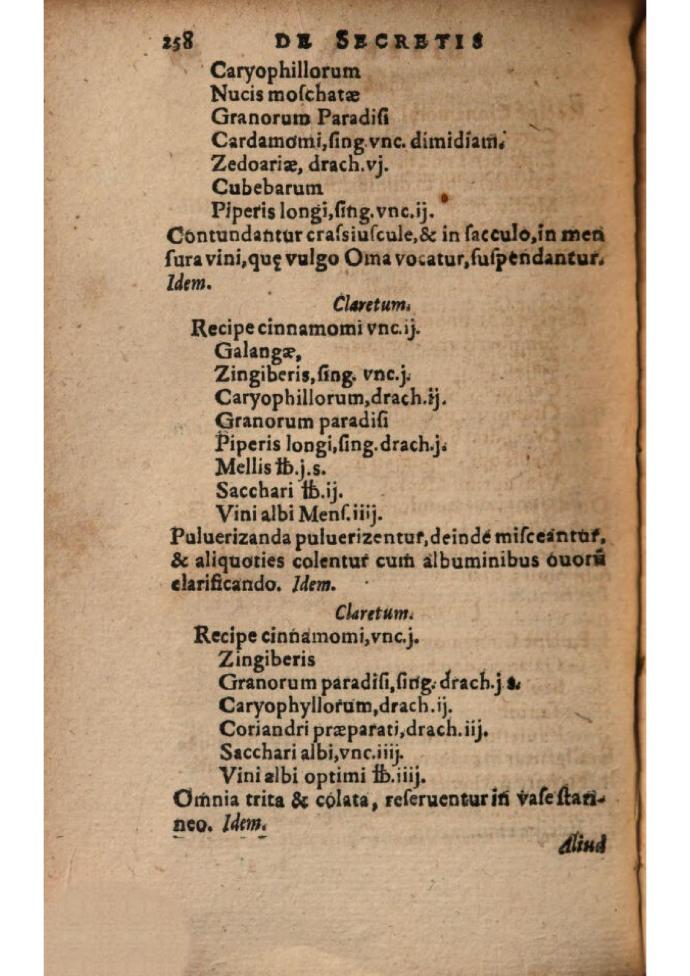 258 DE SECRETIS
Caryophillorum
Nucis moſchatæ
Granorum Paradiſi
Cardamomi,ſing.vnc. dimidiam.
Zedoariæ, drach.vj.
Cubebarum
Piperis longi,ſing.vnc.ij.
Contundantur craſsiuſcule,& in ſacculo,in men
ſura vini,quę vulgo Oma vocatur,ſuſpendantur.
Idem.
Claretum.
Recipe cinnamomi vnc.ij.
Galangæ,
Zingiberis,ſing. vnc.j.
Caryophillorum,drach.ij.
Granorum paradiſi
Piperis longi,ſing.drach.j.
Mellis ℔.j.s.
Sacchari ℔.ij.
Vini albi Menſ.iiij.
Puluerizanda puluerizentur,deinde miſceantur,
& aliquoties colentur cum albuminibus ouorũ
clarificando. Idem.
Claretum.
Recipe cinnamomi,vnc.j.
Zingiberis
Granorum paradiſi,ſing. drach.j s.
Caryophyllorum,drach.ij.
Coriandri præparati,drach.iij.
Sacchari albi,vnc.iiij.
Vini albi optimi ℔.iiij.
Omnia trita & colata, reſeruentur in vaſe ſtan-
neo. Idem.
Aliud